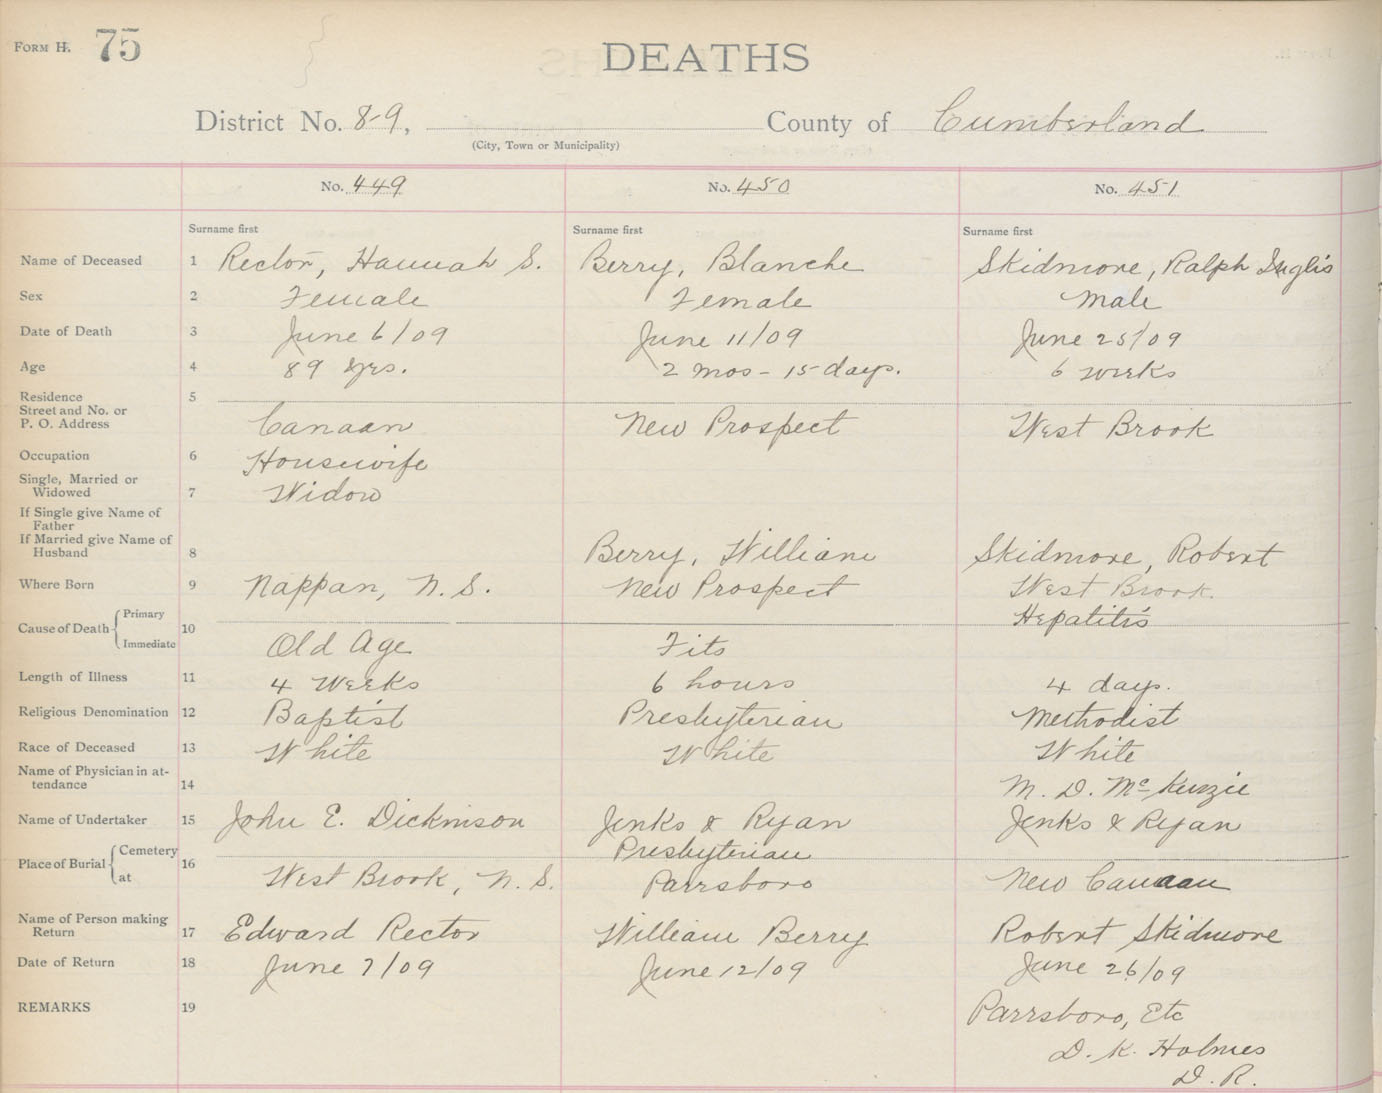 FORM H. 75
DEATHS
District No. 8-9, County of Cumberland
(City, Town or Municipality)
No. 449 No. 450 No. 451
Surname first Surname first Surname first
Name of Deceased 1 Rector, Hannah S. Berry, Blanche Skidmore, Ralph Inglis
Sex 2 Female Female Male
Date of Death 3 June 6/09 June 11/09 June 25/09
Age 4 89 yrs. 2 mos - 15 days. 6 weeks
Residence 5
Street and No. or
P. O. Address Canaan New Prospect West Brook
Occupation 6 Housewife
Single, Married or
Widowed 7 Widow
If Single give Name of
Father
If Married give Name of
Husband 8 Berry, William Skidmore, Robert
Where Born 9 Nappan, N. S. New Prospect West Brook.
Cause of Death Primary Hepatitis
10
Immediate Old Age Fits
Length of Illness 11 4 Weeks 6 hours 4 days.
Religious Denomination 12 Baptist Presbyterian Methodist
Race of Deceased 13 White White White
Name of Physician in at-
tendance 14 M. D. McKenzie
Name of Undertaker 15 John E. Dickinson Jenks & Ryan Jenks & Ryan
Place of Burial Cemetery 16 Presbyterian
at West Brook, N. S. Parrsboro New Canaan
Name of Person making
Return 17 Edward Rector William Berry Robert Skidmore
Date of Return 18 June 7/09 June 12/09 June 26/09
REMARKS 19 Parrsboro, Etc
D. K. Holmes
D. R.